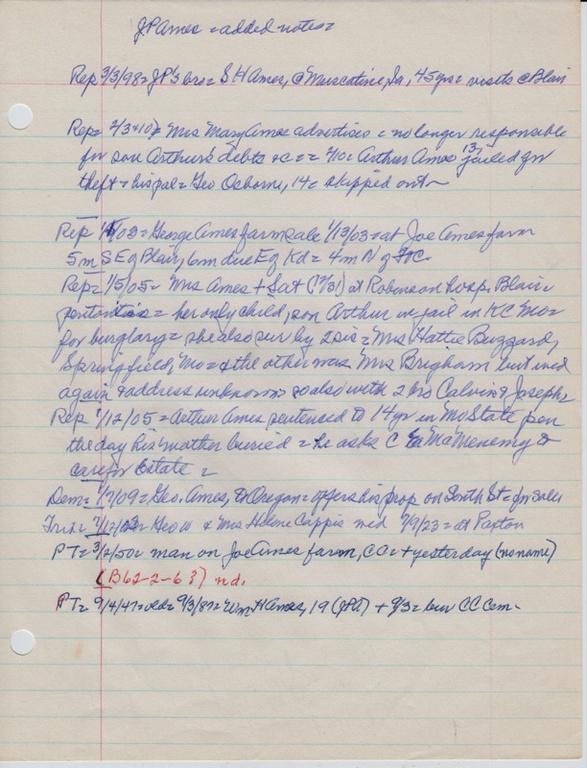 J P Ames = added notes =
Rep 3/3/98 = J P's bro = S H Ames, @ Muscatine, Ia, 45 yrs = visits @ Blair
Rep = = Mrs Mary Ames advertises = no longer responsible
for son Arthur's debts = Arthur Ames 13, jailed for
theft = his pal = Geo Osborne, 14 = skipped out
Rep = George Ames farm sale 1/13/03 = at Joe Ames farm
5 m S E of Blair, 6 m due E of Kd = 4 m N of Ft C.
Rep = 1/5/05 = Mrs Ames + Sat (12/31) at Robinson hosp, Blair
peritonitis = her only child, son Arthur in jail in KC Mo =
for burglary = she also sur by 2 sis = Mrs Hattie Buzzard,
Springfield, Mo = & the other was Mrs Brigham but wed
again & address unknown = also with 2 bro Calvin & Joseph =
Rep 1/12/05 = Arthur Ames sentenced to 14 yr in Mo State pen
the day his mother buried = he asks C McMenemy to
care for Estate =
Dem = 1/7/09 = Geo. Ames, Oregon = offers his prop on South St = for sale
= Geo W & Mrs Helene Cappis med 7/9/23 = at Papton
PT = 3/2/50 = man on Joe Ames farm, CC = + yesterday (no name)
(B62-2-63) nd.
PT = 9/4/47 = = 9/3/87 = Wm H Ames, 19 (JPA) + 9/3 = bur CC Cem.